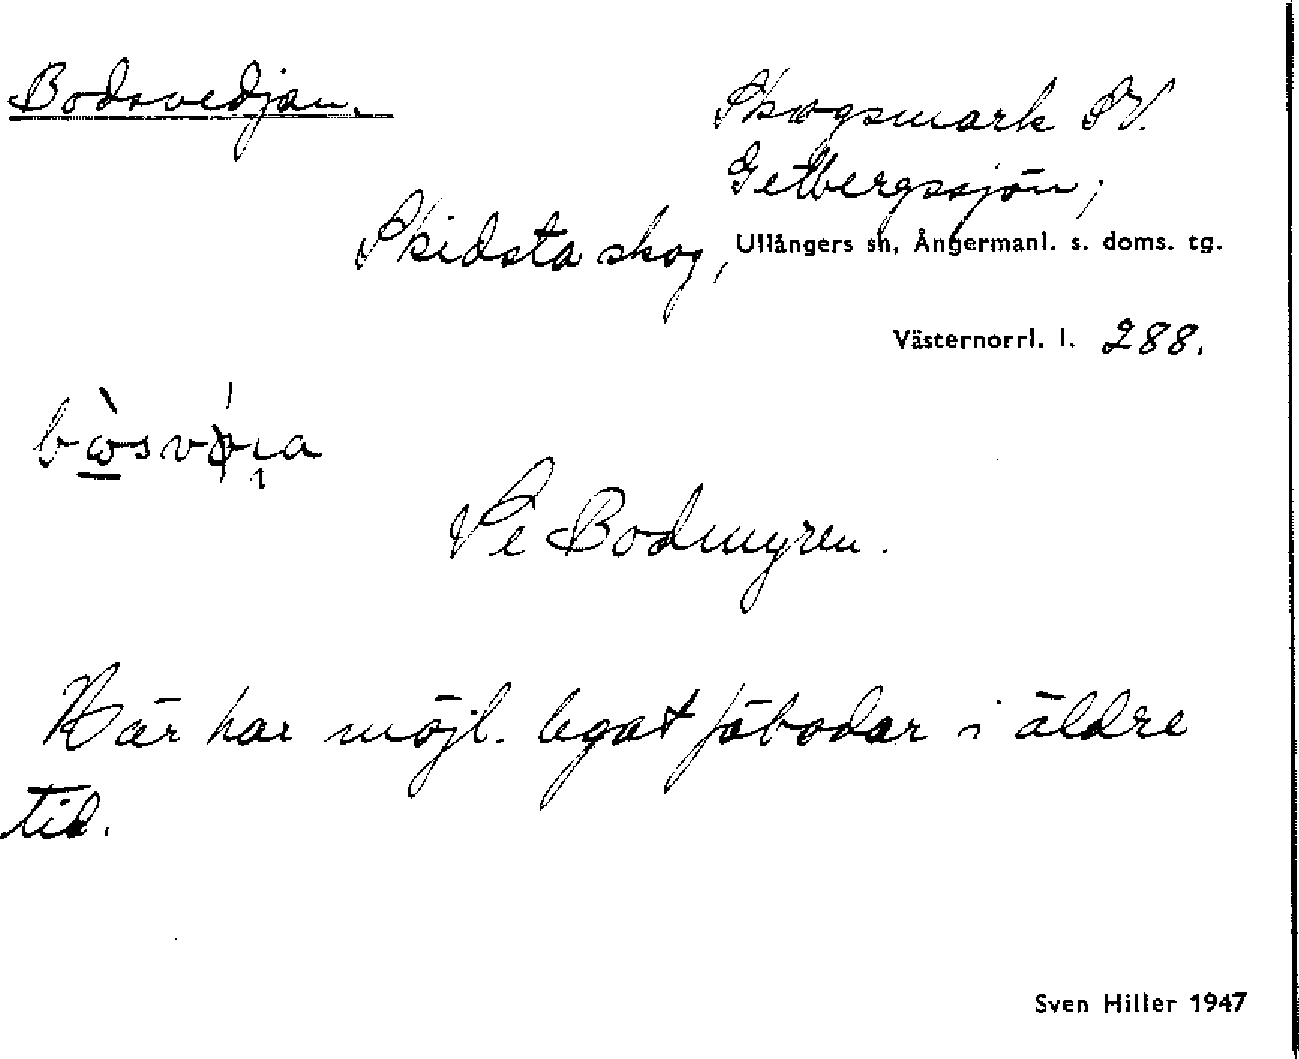 Bodsvedjan.
Skogsmark SV.
Getbergssjön,
Skidsta skog, Ullångers sn, Ångermanl. s. doms. tg.
Västernorrl. l. 288.
Se Bodmyren.
Här har möjl. legat fäbodar i äldre
tid.
Sven Hiller 1947